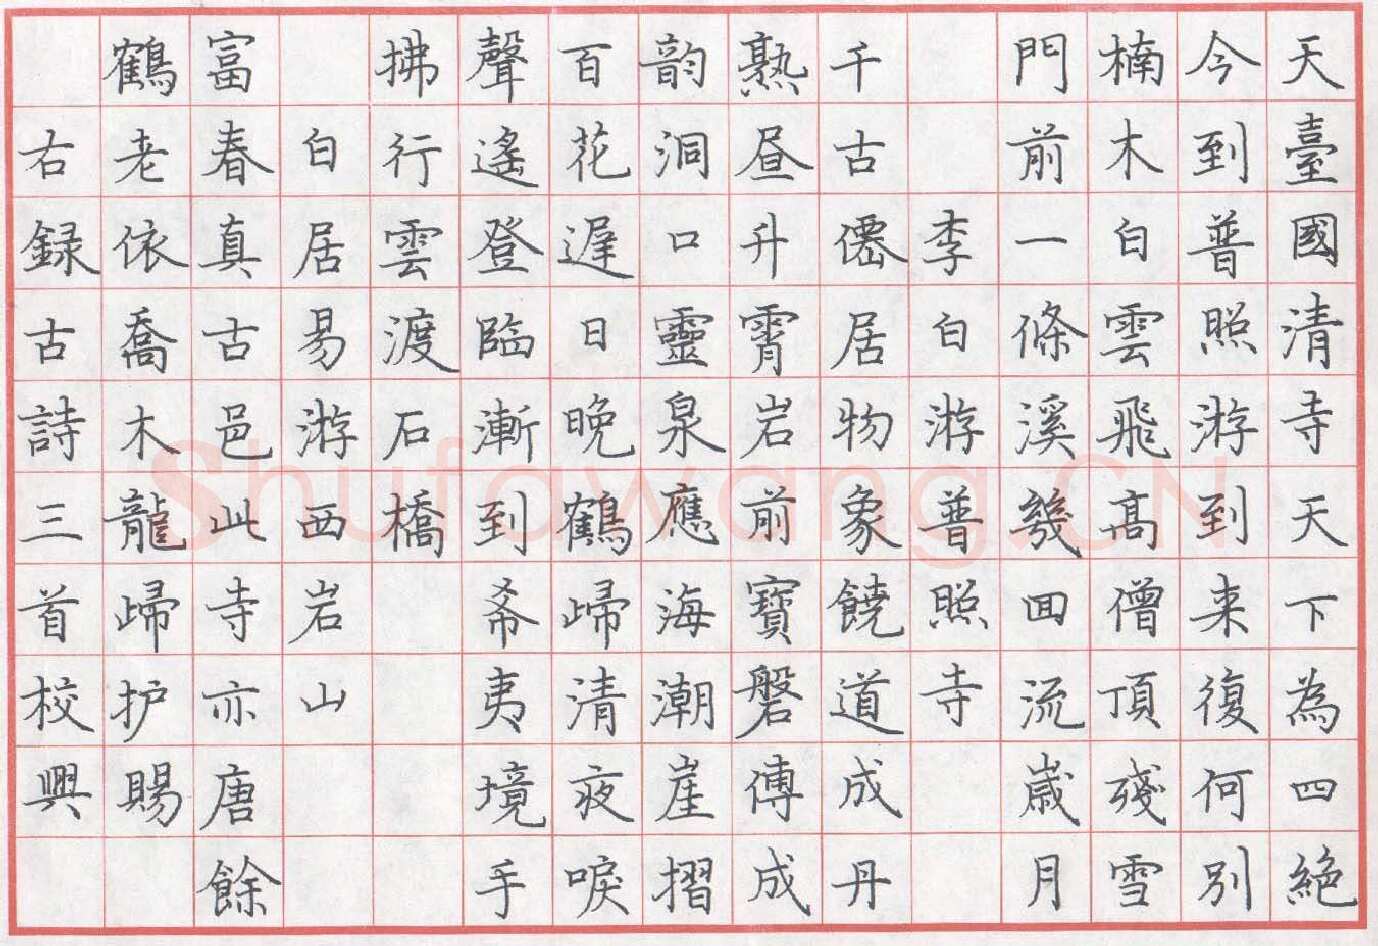 天臺國清寺天下為四絶
今到普照游到来復何別
楠木白雲飛髙僧頂殘雪
門前一條溪幾回流歲月
李白游普照寺
千古僊居物象饒道成丹
熟昼升霄岩前寶磐傅成
韵洞口靈泉應海潮崖摺
百花遲日晚鶴歸清夜唳
聲遙登臨漸到希夷境手
拂行雲渡石橋
白居易游西岩山
富春真古邑此寺亦唐餘
鶴老依喬木龍歸护賜
右録古詩三首校興
Shufawang.CN